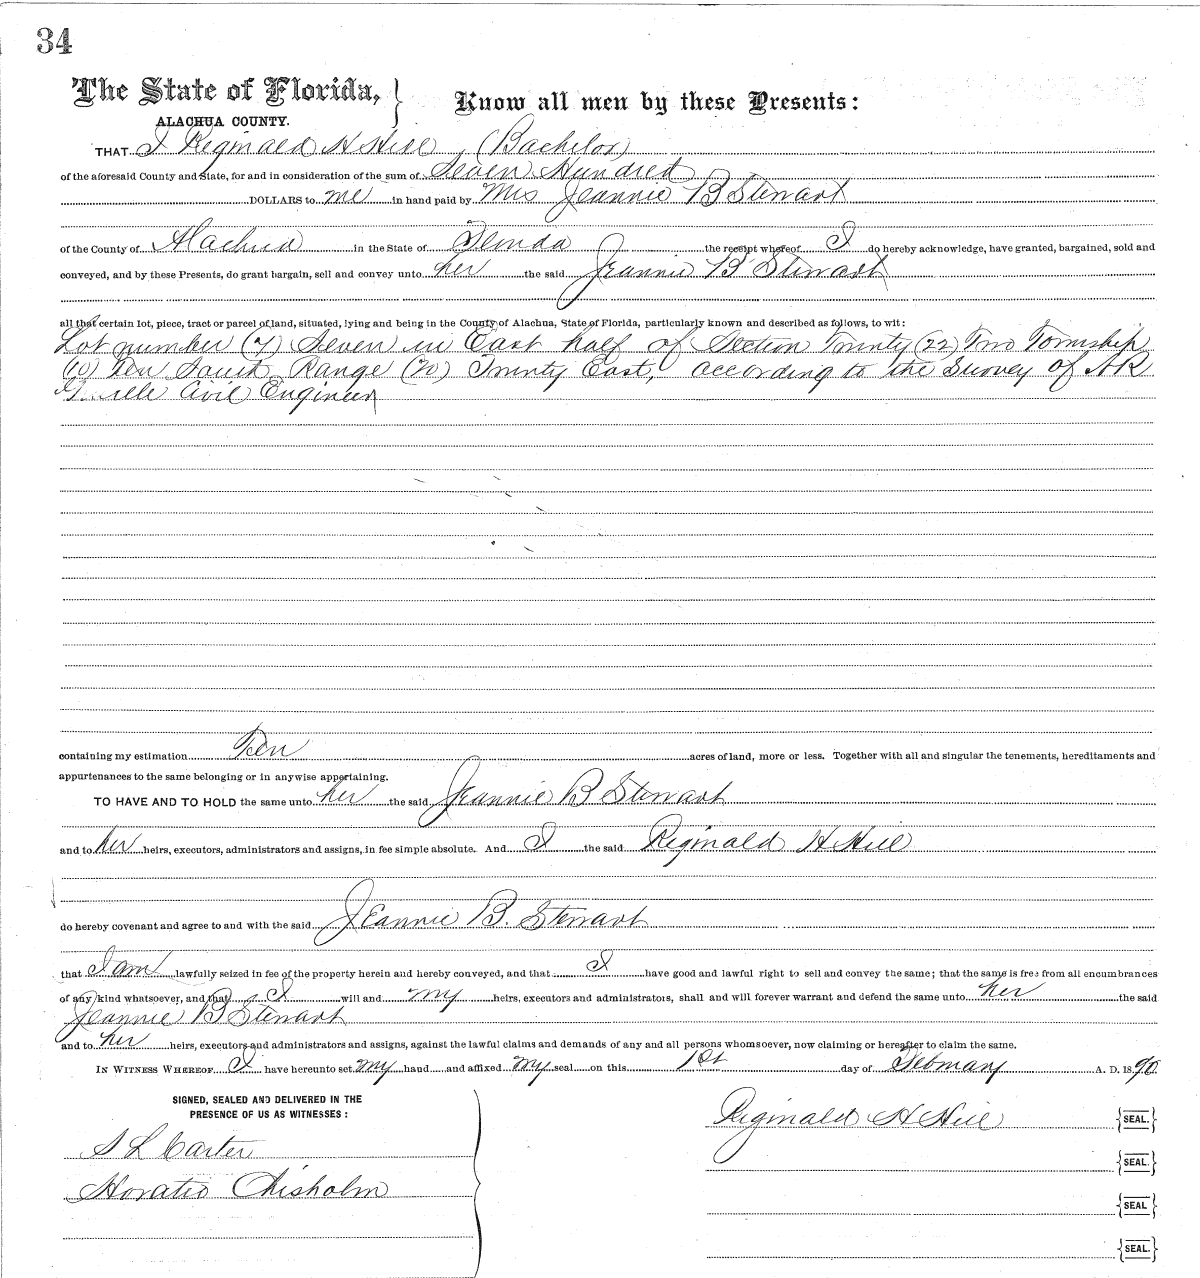 34
The State of Florida, }
ALACHUA COUNTY.
Know all men by these Presents:
THAT I Reginald H Hill (Bachelor)
of the aforesaid County and State, for and in consideration of the sum of Seven Hundred
DOLLARS to me in hand paid by Mrs Jeannie B Stewart
of the County of Alachua in the State of Florida the receipt whereof I do hereby acknowledge, have granted, bargained, sold and
conveyed, and by these Presents, do grant bargain, sell and convey unto her the said Jeannie B Stewart
all that certain lot, piece, tract or parcel of land, situated, lying and being in the County of Alachua, State of Florida, particularly known and described as follows, to wit:
Lot number (7) Seven in East half of Section Twenty (22) Two Township
(10) Ten South Range (20) Twenty East, according to the Survey of
Civil Engineer
containing my estimation Ten acres of land, more or less. Together with all and singular the tenements, hereditaments and
appurtenances to the same belonging or in anywise appertaining.
TO HAVE AND TO HOLD the same unto her the said Jeannie B Stewart
and to her heirs, executors, administrators and assigns, in fee simple absolute. And I the said Reginald H Hill
do hereby covenant and agree to and with the said Jeannie B. Stewart
that I am lawfully seized in fee of the property herein and hereby conveyed, and that I have good and lawful right to sell and convey the same; that the same is free from all encumbrances
of any kind whatsoever, and that I will and my heirs, executors and administrators, shall and will forever warrant and defend the same unto her the said
Jeannie B Stewart
and to her heirs, executors and administrators and assigns, against the lawful claims and demands of any and all persons whomsoever, now claiming or hereafter to claim the same.
IN WITNESS WHEREOF I have hereunto set my hand and affixed my seal on this 1st day of February A. D. 1890.
SIGNED, SEALED AND DELIVERED IN THE
PRESENCE OF US AS WITNESSES:
S L Carter
Horatio Chisholm
Reginald H Hill {SEAL.}
{SEAL.}
{SEAL}
{SEAL.}